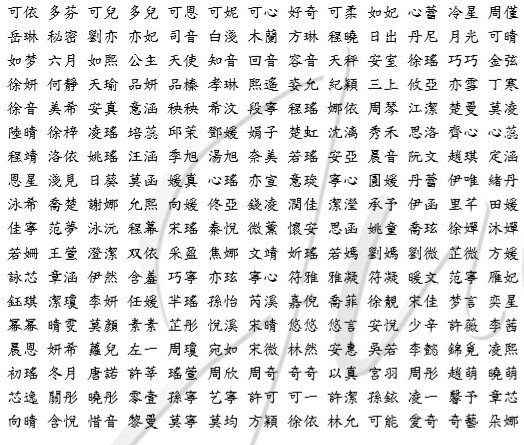 可依 多芬 可兒 多兒 可恩 可妮 可心 好奇 可柔 如妃 心蕾 冷星 周僅
岳琳 秘密 劉亦 亦妃 司音 白淺 木蘭 方琳 程曉 日出 丹尼 月光 可晴
如夢 六月 如熙 公主 天使 知音 回音 容音 天秤 安室 徐瑤 巧巧 金弦
徐妍 何靜 天瑜 品妍 品榛 孝琳 熙遙 姿允 紀穎 三上 攸亞 亦雪 丁寒
徐音 美希 安真 意涵 秧秧 希汶 段寧 程瑤 娜依 周琴 江潔 楚曼 莫凌
陸晴 徐梓 凌瑤 培蕊 邱茉 鄧媛 娟子 楚虹 沈漓 秀禾 思洛 齊心 心蕊
程靖 洛依 姚瑤 汪涵 李旭 湯旭 奈美 若瑤 安亞 晨音 阮文 趙琪 定涵
恩星 淺見 日葵 莫函 媛真 心瑤 亦宣 意琰 寧心 圓媛 丹蕾 伊唯 緒丹
泳希 喬楚 謝娜 允熙 向媛 佟亞 錢凌 潤佳 潔瀅 承予 伊函 里芊 田媛
佳寧 范夢 泳沅 程幕 宋瑤 秦悅 微薰 懷安 思函 姚童 喬玹 徐嬋 沐嬋
若姍 王萱 澄潔 双依 采盈 焦娜 文靖 妡瑤 若嫣 劉嫣 劉微 芷微 方媛
詠芯 章涵 伊然 含羞 巧寧 亦玹 寧心 符雅 雅凝 符凝 暖文 范寧 雁妃
鈺琪 潔瓊 李妍 任媛 芊瑤 孫怡 芮溪 嘉倪 喬菲 徐靚 宋佳 梦言 奕星
冪冪 晴雯 莫顏 素素 芷彤 悅溪 宋晴 悠悠 悠言 安悅 少辛 許薇 李茜
晨恩 妍希 蘿兒 左一 周瓊 宛如 宋微 林然 安惠 吳若 李懿 錦覓 凌熙
初瑤 冬月 唐諾 許莘 瑤萱 周欣 周奇 奇奇 以真 宮羽 周彤 趙萌 曉萌
芯逸 關彤 曉彤 零壹 孫寧 艺寧 許可 可一 許潔 孫鉉 凌一 馨予 章芯
向晴 含悅 惜音 黎曼 莫寧 莫均 方穎 徐依 林允 可能 爱奇 奇藝 朵娜